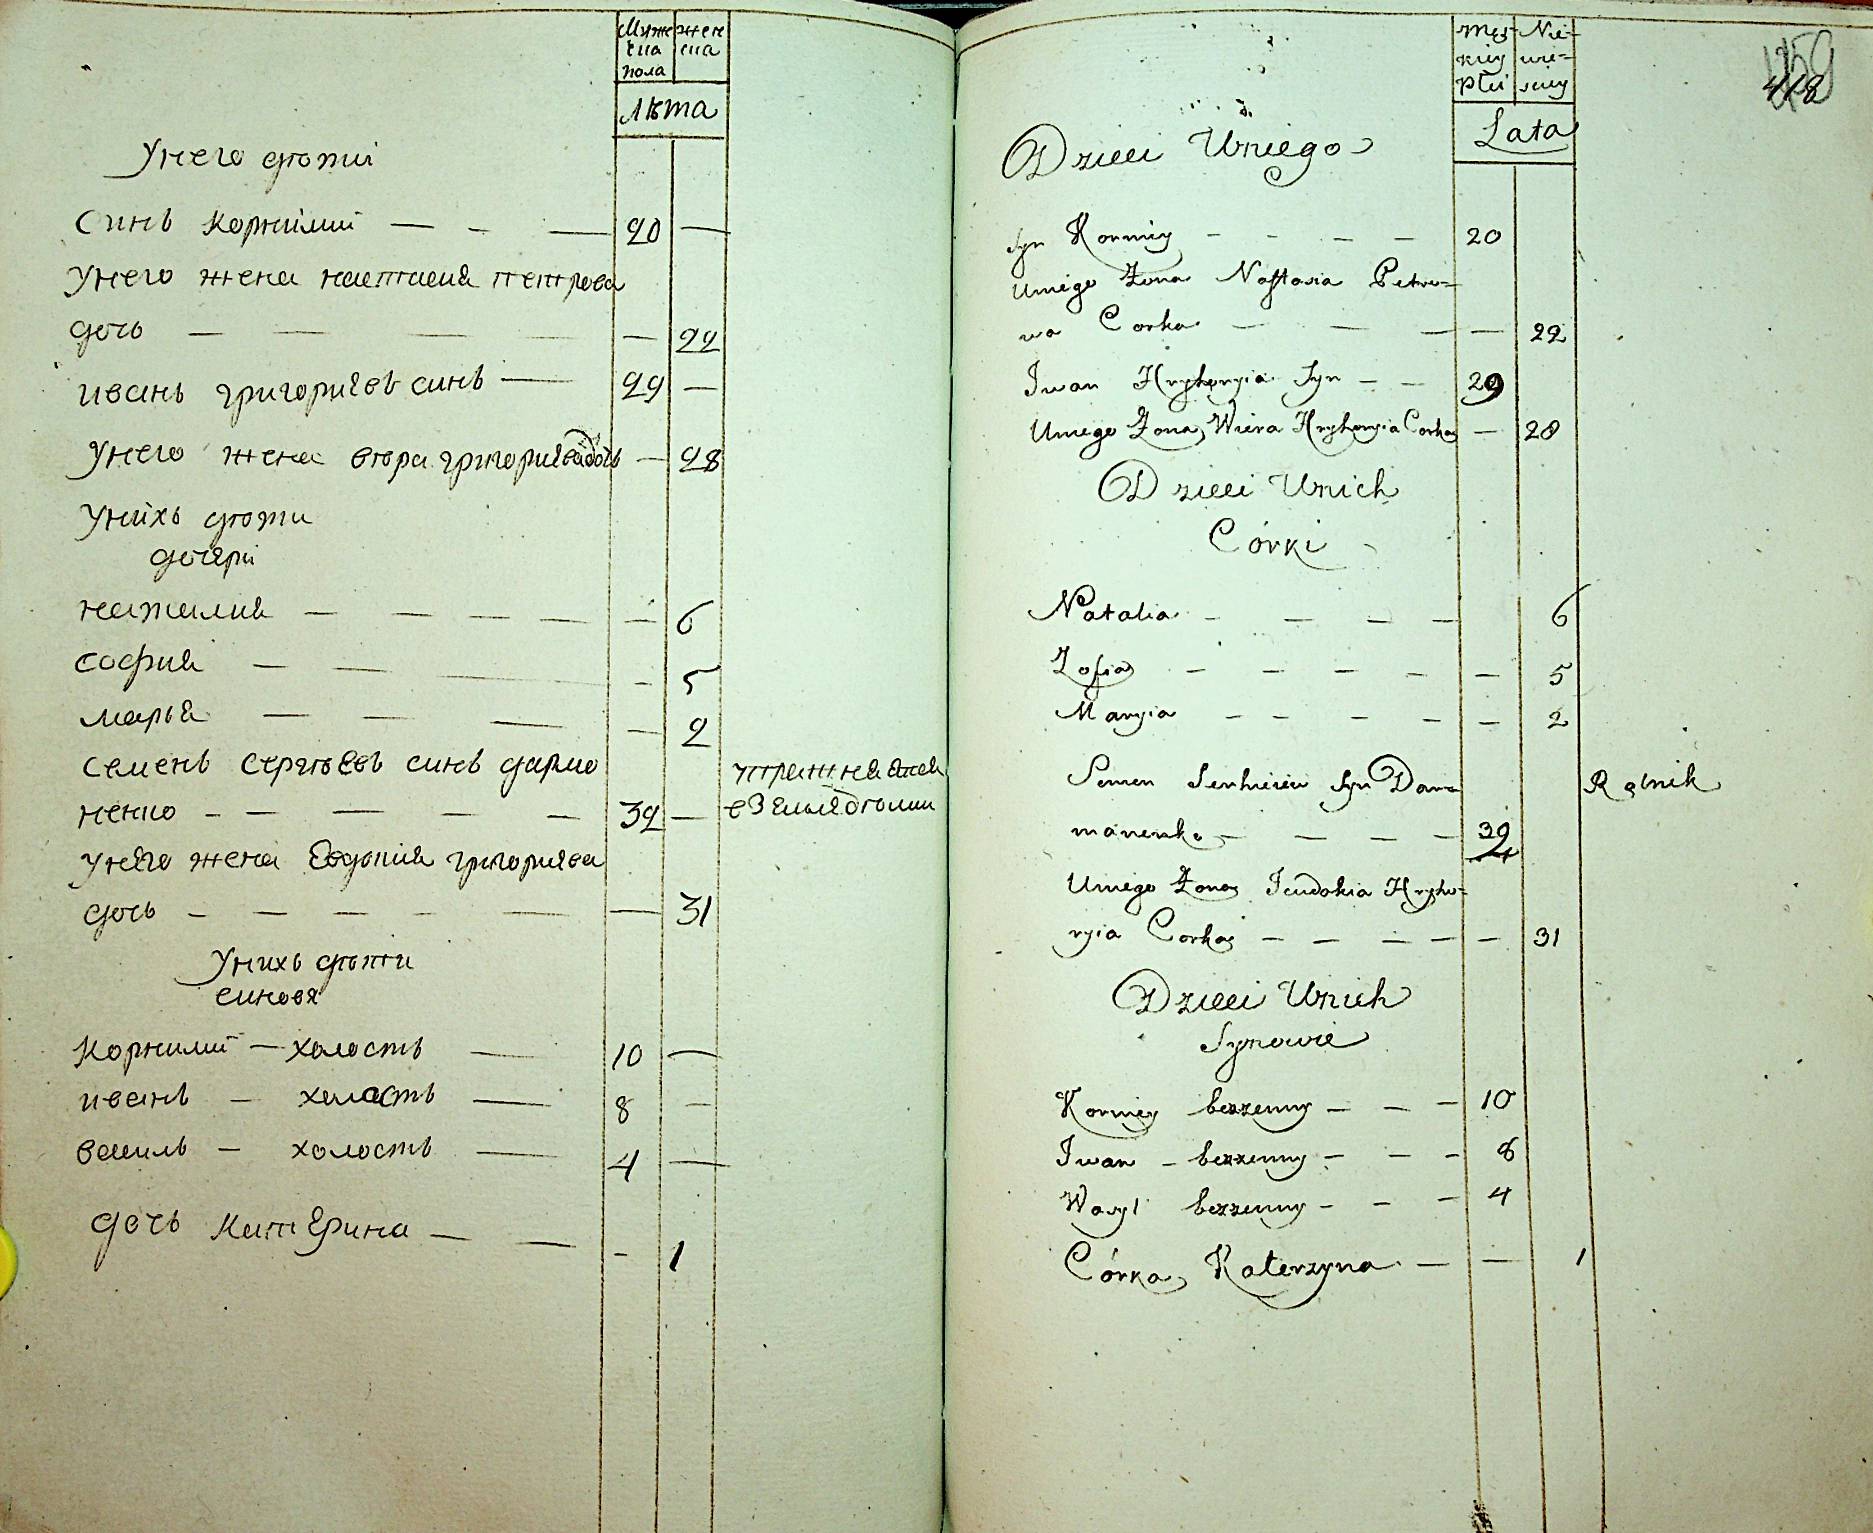 Муже жен
ска ска
пола
лѣта
Унего дѣти
Синъ Корнилий — - — 20 —
Унего жена настасия петрова
дочь — — — — — 22
иванъ григориевъ синъ — 29 —
Унего жена вѣра григориева дочь — 28
Унихъ дѣти
дочери
наталия — — — — — 6
софия — — - 5
марья — — — — 2
семенъ сергѣевъ синъ дармо
ненко - — — — — 32 —
унего жена Евдокия григориева
дочь - — — - — — 31
Унихъ дѣти
синовя
Корнилий — холостъ — 10 —
иванъ — холостъ — 8 —
василь — холостъ — 4 —
дочь Катерина — — - 1
упражняется
в землѣделии
Męs- Nie-
kiey wie=
płci sciey
Lata
418
Dzieci Uniego
Syn Korniey - - - — 20
Uniego Żona Nastasia Petro=
wa Corka — — — — 22
Iwan Hryhoryia Syn — — 29
Uniego Żona Wiera Hryhoryia Corka — 28
Dzieci Unich
Córki
Natalia - — - — 6
Zofia — - — - — — 5
Maryia - - - - — 2
Semen Serhieiew Syn Dar=
manenko — — — — 32
Rolnik
Uniego Żona Ieudokia Hryho=
ryia Corka — — — — — 31
Dzieci Unich
Synowie
Korniey bezzenny — — — 10
Iwan - bezzenny - - - 8
Wasyl bezzenny - - — 4
Córka Katerzyna — — 1